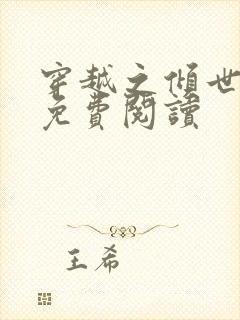 穿越之傾世
免費閱讀
王希